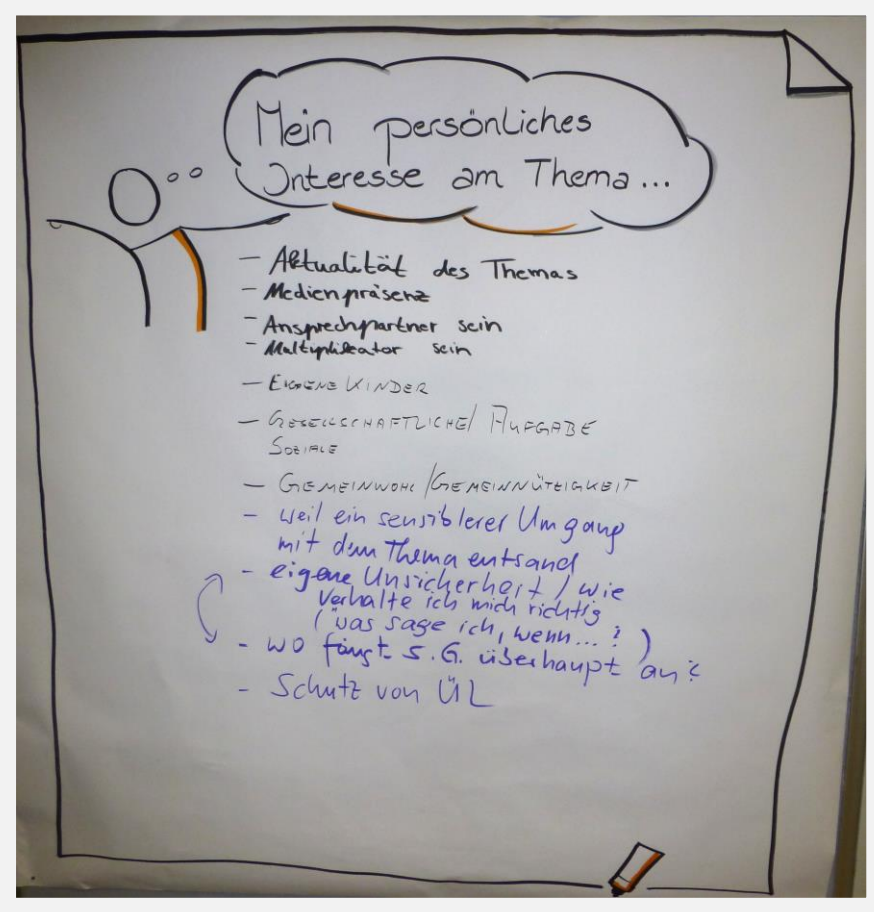 Mein persönliches
Interesse am Thema...
- Aktualität des Themas
- Medienpräsenz
- Ansprechpartner sein
- Multiplikator sein
- EIGENE KINDER
- GESELLSCHAFTLICHE/ AUFGABE
SOZIALE
- GEMEINWOHL/GEMEINNÜTZIGKEIT
- weil ein sensiblerer Umgang
mit dem Thema entsand
- eigene Unsicherheit / wie
verhalte ich mich richtig
(was sage ich, wenn...?)
- wo fängt s.G. überhaupt an?
- Schutz von ÜL